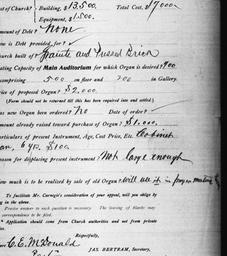 of Church? - Building, $13,500. Total Cost, $17000
Equipment, $1,500.
Amount of Debt? None
is Debt provided for?
Church built of? Granite and Pressed Brick
Seating Capacity of Main Auditorium for which Organ is desired? 900
comprising 500 on floor and 200 in Gallery.
Price of proposed Organ? $2,000.
(Form should not be returned till this has been enquired into and settled.)
as new Organ been ordered? No Date of order?
Amount already raised toward purchase of Organ? $1,000.
Particulars of present Instrument, Age, Cost Price, Etc. Cabinet
6 yrs. $100.
Reason for displacing present instrument? Not large enough
How much is to be realized by sale of old Organ? will use it in prayer meeting
To facilitate Mr. Carnegie's consideration of your appeal, will you oblige by
in the above.
Precise answer to each question is necessary. The leaving of Blanks may
correspondence to be filed.
Application should come from Church authorities and not from private
Respectfully,
C.E. McDonald
JAS. BERTRAM, Secretary,